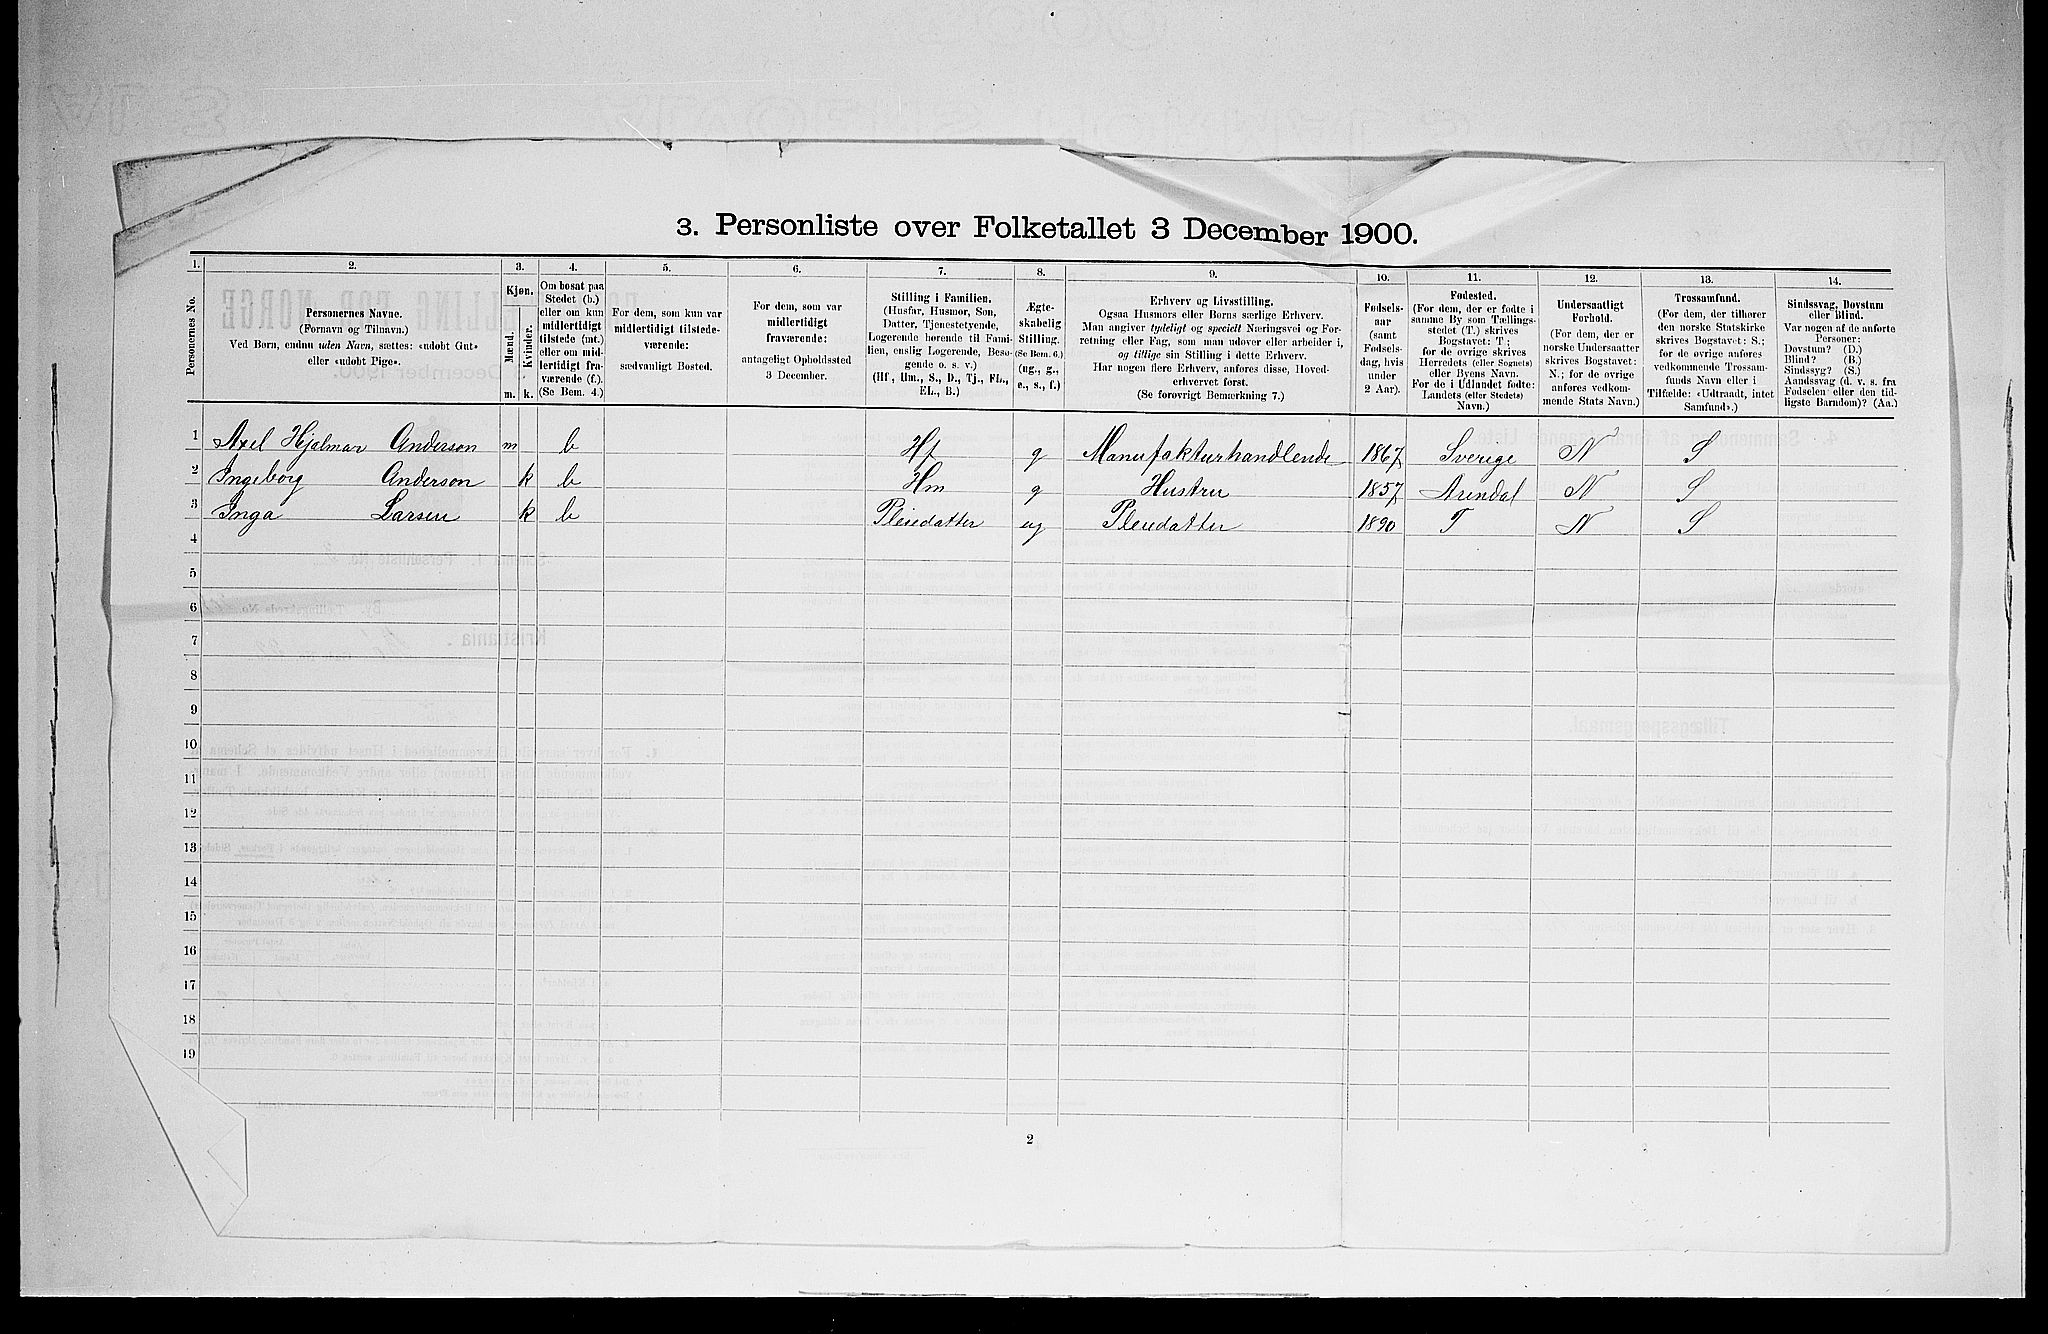 3. Personliste over Folketallet 3 December 1900.
1. 2. 3. 4. 5. 6. 7. 8. 9. 10. 11. 12. 13. 14.
Personernes No.
Personernes Navne.
(Fornavn og Tilnavn.)
Ved Børn, endnu uden Navn, sættes: «udøbt Gut»
eller «udøbt Pige».
Kjøn.
Mænd.
Kvinder.
m. k.
Om bosat paa
Stedet (b.)
eller om kun
midlertidigt
tilstede (mt.)
eller om mid-
lertidigt fra-
værende (f.).
(Se Bem. 4.)
For dem, som kun var
midlertidigt tilstede-
værende:
sædvanligt Bosted.
For dem, som var
midlertidigt
fraværende:
antageligt Opholdssted
3 December.
Stilling i Familien.
(Husfar, Husmor, Søn,
Datter, Tjenestetyende,
Logerende hørende til Fami-
lien, enslig Logerende, Besø-
gende o. s. v.)
(Hf., Hm., S., D., Tj., FL.,
EL., B.)
Ægte-
skabelig
Stilling.
(Se Bem. 6.)
(ug., g.,
e., s., f.)
Erhverv og Livsstilling.
Ogsaa Husmors eller Børns særlige Erhverv.
Man angiver tydeligt og specielt Næringsvei og For-
retning eller Fag, som man udøver eller arbeider i,
og tillige sin Stilling i dette Erhverv.
Har nogen flere Erhverv, anføres disse, Hoved-
erhvervet først.
(Se forøvrigt Bemærkning 7.)
Fødsels-
aar
(samt
Fødsels-
dag, hvis
under
2 Aar).
Fødested.
(For dem, der er fødte i
samme By som Tællings-
stedet (T.) skrives
Bogstavet: T;
for de øvrige skrives
Herredets (eller Sognets)
eller Byens Navn.
For de i Udlandet fødte:
Landets (eller Stedets)
Navn.)
Undersaatligt
Forhold.
(For dem, der er
norske Undersaatter
skrives Bogstavet:
N.; for de øvrige
anføres vedkom-
mende Stats Navn.)
Trossamfund.
(For dem, der tilhører
den norske Statskirke
skrives Bogstavet: S.;
for de øvrige anføres
vedkommende Trossam-
funds Navn eller i
Tilfælde: «Udtraadt, intet
Samfund».)
Sindssvag, Døvstum
eller Blind.
Var nogen af de anførte
Personer:
Døvstum? (D.)
Blind? (B.)
Sindssyg? (S.)
Aandssvag (d. v. s. fra
Fødselen eller den tid-
ligste Barndom)? (Aa.)
1 Axel Hjalmar Anderson m b Hf g Manufakturhandlende 1867 Sverige N S
2 Ingeborg Anderson k b Hm g Hustru 1857 Arendal N S
3 Inga Larsen k b Pleiedatter ug Pleiedatter 1890 T N S
4
5
6
7
8
9
10
11
12
13
14
15
16
17
18
19
2